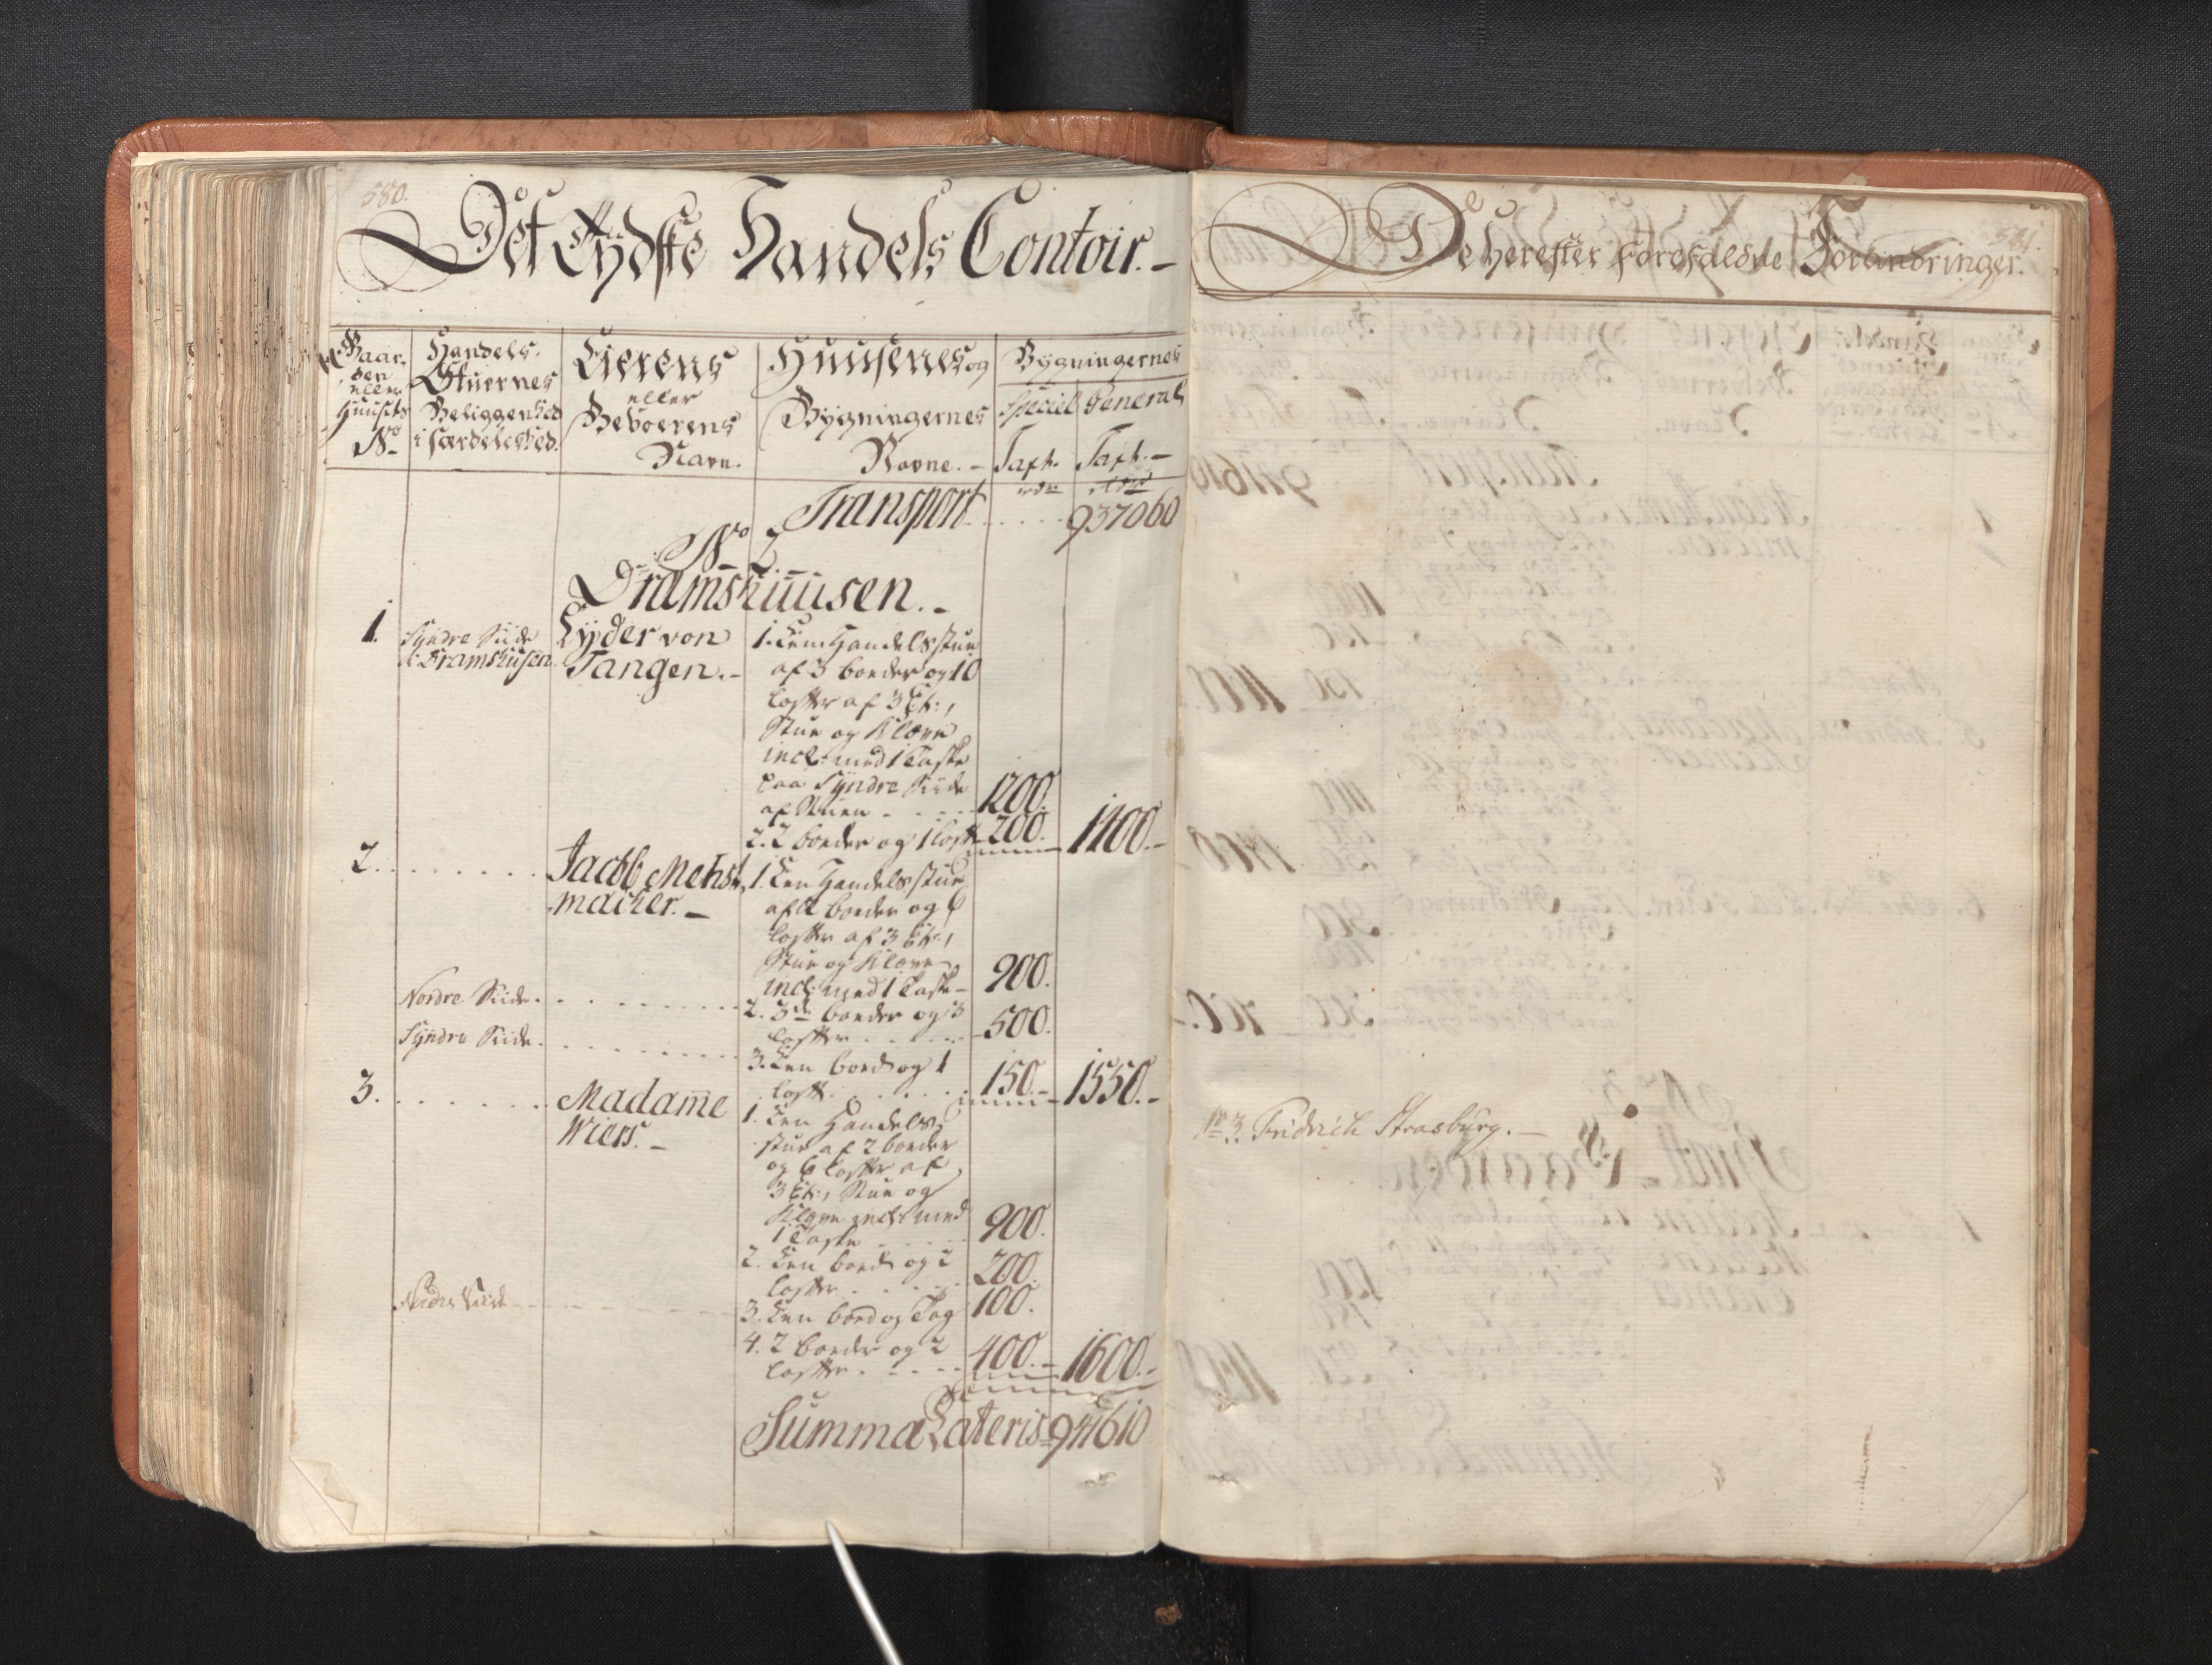 580.
Det Tÿdske Handels Contoir.-
Gaar-
den
eller
Huusets
No
Handels-
Stuernes
Beliggenhed
i særdeleshed.
Eierens
eller
Beboerens
Navn.
Huusenes og
Bÿgningernes
Navne.-
Bÿgningernes
Speciel General
Taxt. Taxt.-
rdr rdr
Transport . . . . . 937060
No 2
Dramshuusen.-
1. Sÿndre Siide i Dramshusen. Lÿder von Tangen.- 1. Een Handelsstue
af 3 boeder og 10
lofter af 3 Et:,
Stue og Klæve
incl: med 1 Taske
paa Sÿndre Siide
af Stuen - . . . 1200.
2. 2 boeder og 1 loft 200. 1400.-
2. . . . . . . . Jacob Mehst- 1. Een Handelsstue
macher.- af 2 boeder og 6
lofter af 3 Et:,
Stue og Klæve
incl: med 1 Taske- 900.
Nordre Siide. . . . . . . . . 2. 3de boeder og 3
lofter . . . . . 500.
Sÿndre Siide. . . . . . . . . 3. Een boed og 1
loft . . . . . . 150.- 1550.-
3. . . . . . . Madame 1. Een Handels
Wiers.- stue af 2 boeder
og 6 lofter af
3 Et:, Stue og
Klæve incl: med
1 Taske . . . . 900.
2. Een boed og 2
lofter . . . . 200.
Nordre Siide - - - - - - 3. Een boed og Tag 100.
4. 2 boeder og 2
lofter . - - - 400.- 1600.-
Summa Lateris 941610
581.
De herefter forefaldne Forandringer.
No 3. Fridrich Strasburg.-